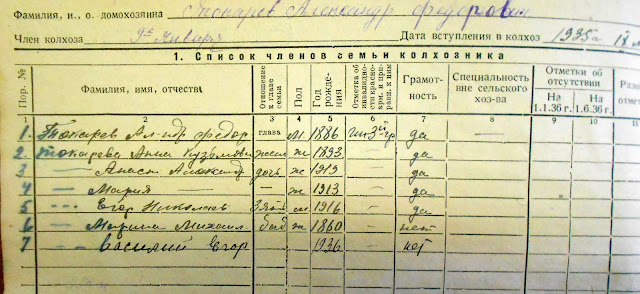 Фамилия, и., о. домохозяина Токарев Александр Федорович
Член колхоза 9е Января Дата вступления в колхоз 1935 г. IX м
1. Список членов семьи колхозника
Пор. № Фамилия, имя, отчество Отношение к главе семьи Пол Год рождения Отметка об инвалидности красноарм. и прирав. к ним Грамотность Специальность вне сельского хоз-ва Отметки об отсутствии
На 1.1.36 г. На 1.6.36 г.
1 2 3 4 5 6 7 8 9 10 11
1. Токарев Ал-ндр Федор глава м 1886 да
2. Токарева Анна Кузьмов жена ж 1893 – да
3 — Анаст Александ дочь ж 1919 – да
4 — Мария — ж 1913 – да
5 — Егор Николаев Зять м 1916 – да
6 — Марина Михаил баб ж 1860 – нет
7 — Василий Егор 1936 нет